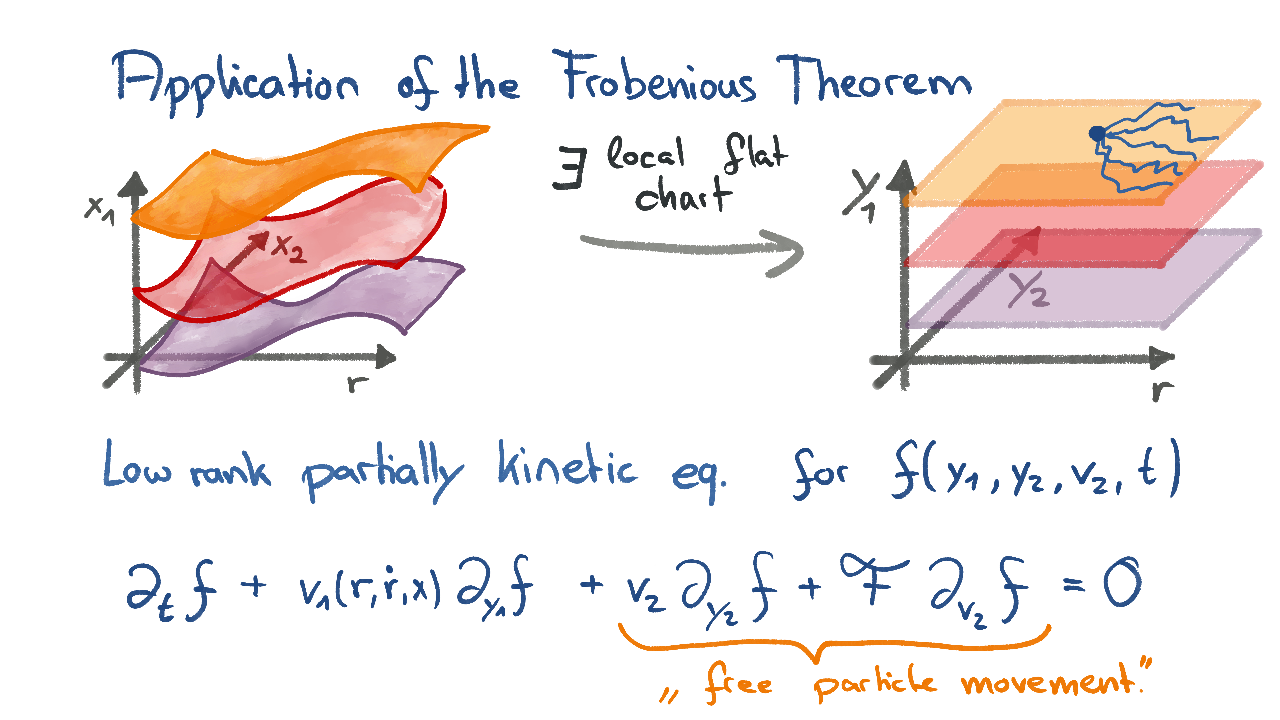 Application of the Frobenious Theorem
∃ local flat
chart
x₁
x₂
r
y₁
y₂
r
Low rank partially kinetic eq. for f(y₁, y₂, v₂, t)
∂ₜ f + v₁(r, ṙ, x) ∂_{y₁} f + v₂ ∂_{y₂} f + ℱ ∂_{v₂} f = 0
„ free particle movement."